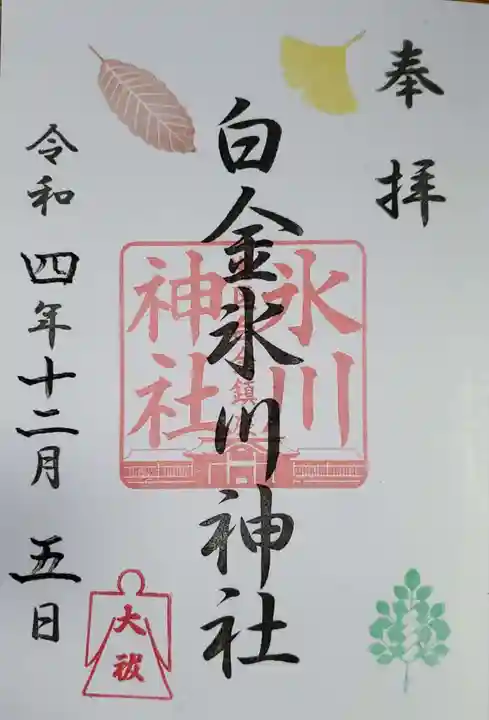 奉拝
白金氷川神社
氷川
神社
鎮
令和四年十二月五日
大祓